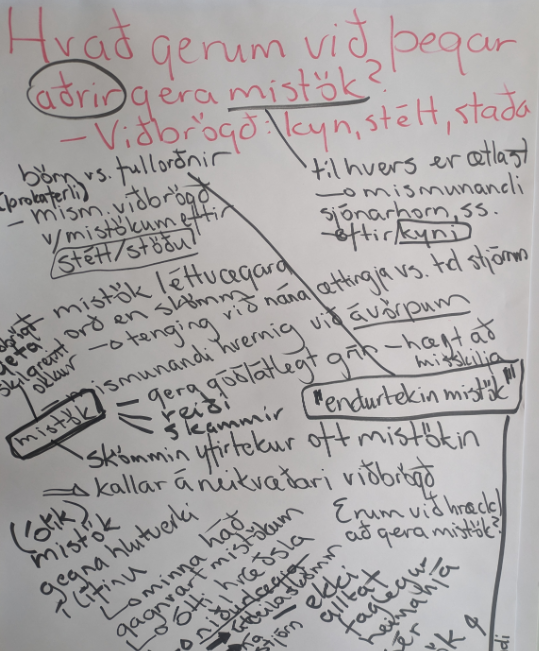 Hvað gerum við þegar
aðrir gera mistök?
– Viðbrögð: kyn, stétt, staða
börn vs. fullorðnir
– mism. viðbrögð
v/mistökum eftir
stétt/stöðu
til hvers er ætlast
mismunandi
sjónarhorn, ss.
eftir kyni
mistök léttvægara
orð en skömm
tenging við nána ættingja vs. td stjórn
mismunandi hvernig við ávörpum
– gera góðlátlegt grín – hægt að
misskilja
mistök
reiði
skammir
"endurtekin mistök"
skömmin yfirtekur oft mistökin
kallar á neikvæðari viðbrögð
Erum við hrædd
að gera mistök?
(ólík)
mistök
gegna hlutverki
í lífinu
minna háð
gagnvart mistökum
ótti hræðsla
ekki
alltaf
faglegur